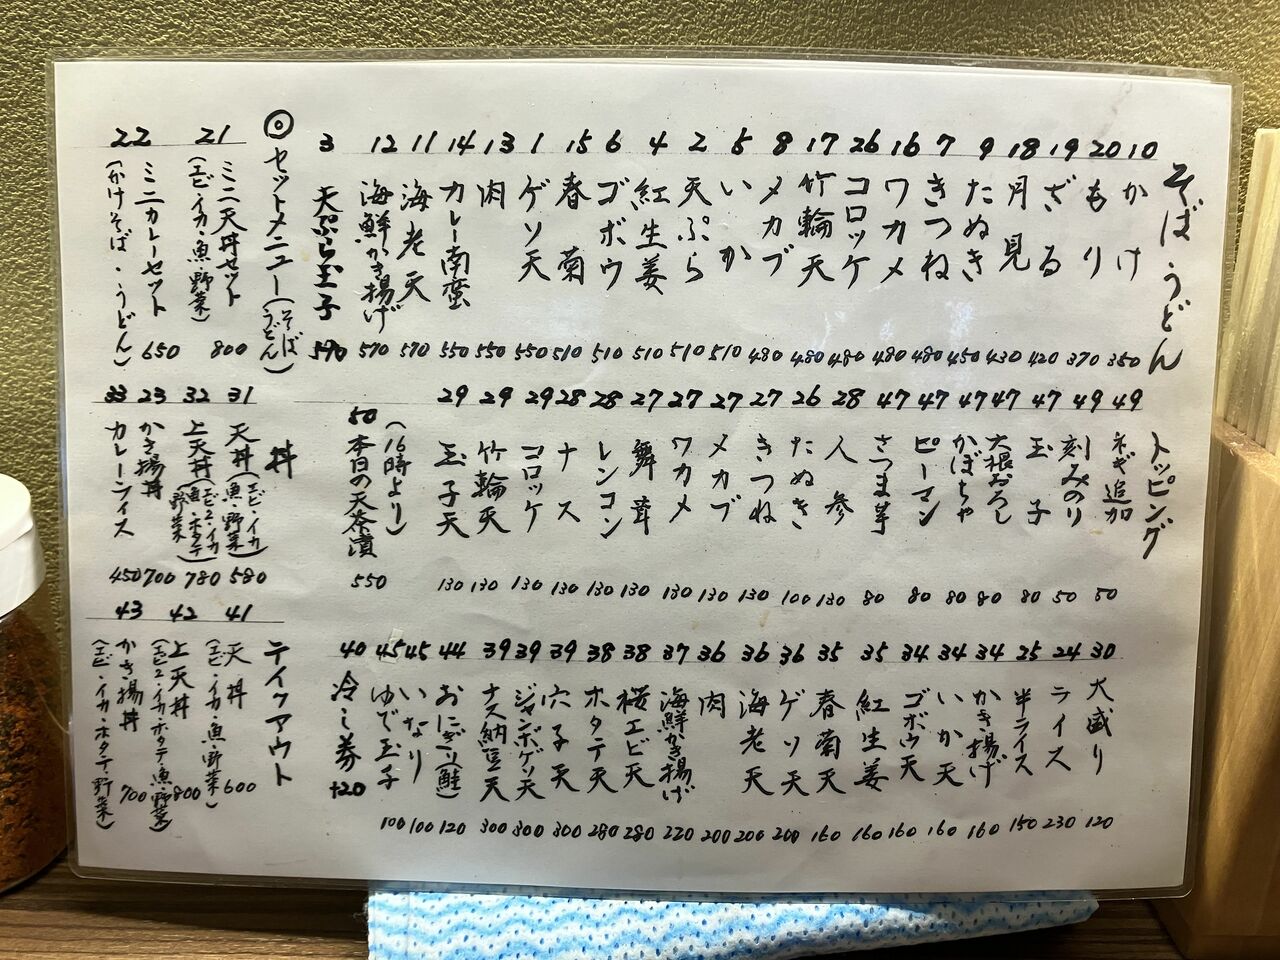 そば・うどん
10 かけ 350
20 もり 370
19 ざる 420
18 月見 430
9 たぬき 450
7 きつね 480
16 ワカメ 480
26 コロッケ 480
17 竹輪天 480
8 メカブ 480
5 いか 510
2 天ぷら 510
4 紅生姜 510
6 ゴボウ 510
15 春菊 510
1 ゲソ天 550
13 肉 550
14 カレー南蛮 550
11 海老天 570
12 海鮮かき揚げ 570
3 天ぷら玉子 590
◎セットメニュー(そば・うどん)
21 ミニ天丼セット 800
(エビ・イカ・魚・野菜)
22 ミニカレーセット 650
(かけそば・うどん)
トッピング
49 ネギ追加 50
49 刻みのり 50
47 玉子 80
47 大根おろし 80
47 かぼちゃ 80
47 ピーマン 80
47 さつま芋 80
28 人参 130
26 たぬき 100
27 きつね 130
27 メカブ 130
27 ワカメ 130
27 舞茸 130
28 レンコン 130
28 ナス 130
29 コロッケ 130
29 竹輪天 130
29 玉子天 130
(16時より)
50 本日の天茶漬 550
丼
31 天丼(エビ・イカ・魚・野菜) 580
32 上天丼(エビ2・イカ・魚・ホタテ・野菜) 780
23 かき揚丼 700
33 カレーライス 450
30 大盛り 120
24 ライス 230
25 半ライス 150
34 かき揚げ 160
34 いか天 160
34 ゴボウ天 160
35 紅生姜 160
35 春菊天 160
36 ゲソ天 200
36 海老天 200
36 肉 200
37 海鮮かき揚げ 220
38 桜エビ天 280
38 ホタテ天 280
39 穴子天 300
39 ジャンボゲソ天 300
39 ナス納豆天 300
44 おにぎり(鮭) 120
45 いなり 100
45 ゆで玉子 100
40 冷し券 +20
テイクアウト
41 天丼 600
(エビ・イカ・魚・野菜)
42 上天丼 800
(エビ2・イカ・ホタテ・魚・野菜)
43 かき揚丼 700
(エビ・イカ・ホタテ・野菜)